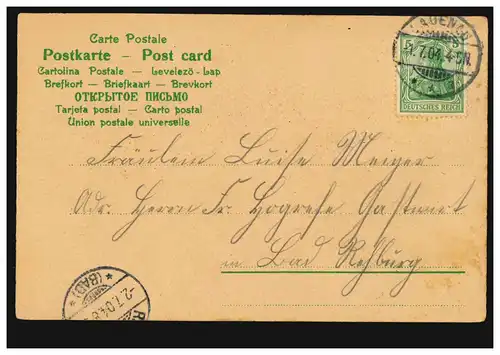 Carte Postale
Postkarte – Post card
Cartolina Postale – Levelezö-Lap
Brefkort – Briefkaart – Brevkort
ОТКРЫТОЕ ПИСЬМО
Tarjeta postal – Carto postal
Union postale universelle
LAUENAU
1.7.04. 4-5N.
5 5
DEUTSCHES REICH
Fräulein Luise Meyer
Adr. Herrn Fr. Hogrefe Gastwirt
in Bad Rehburg
(BAD)
-2.7.04.8
R